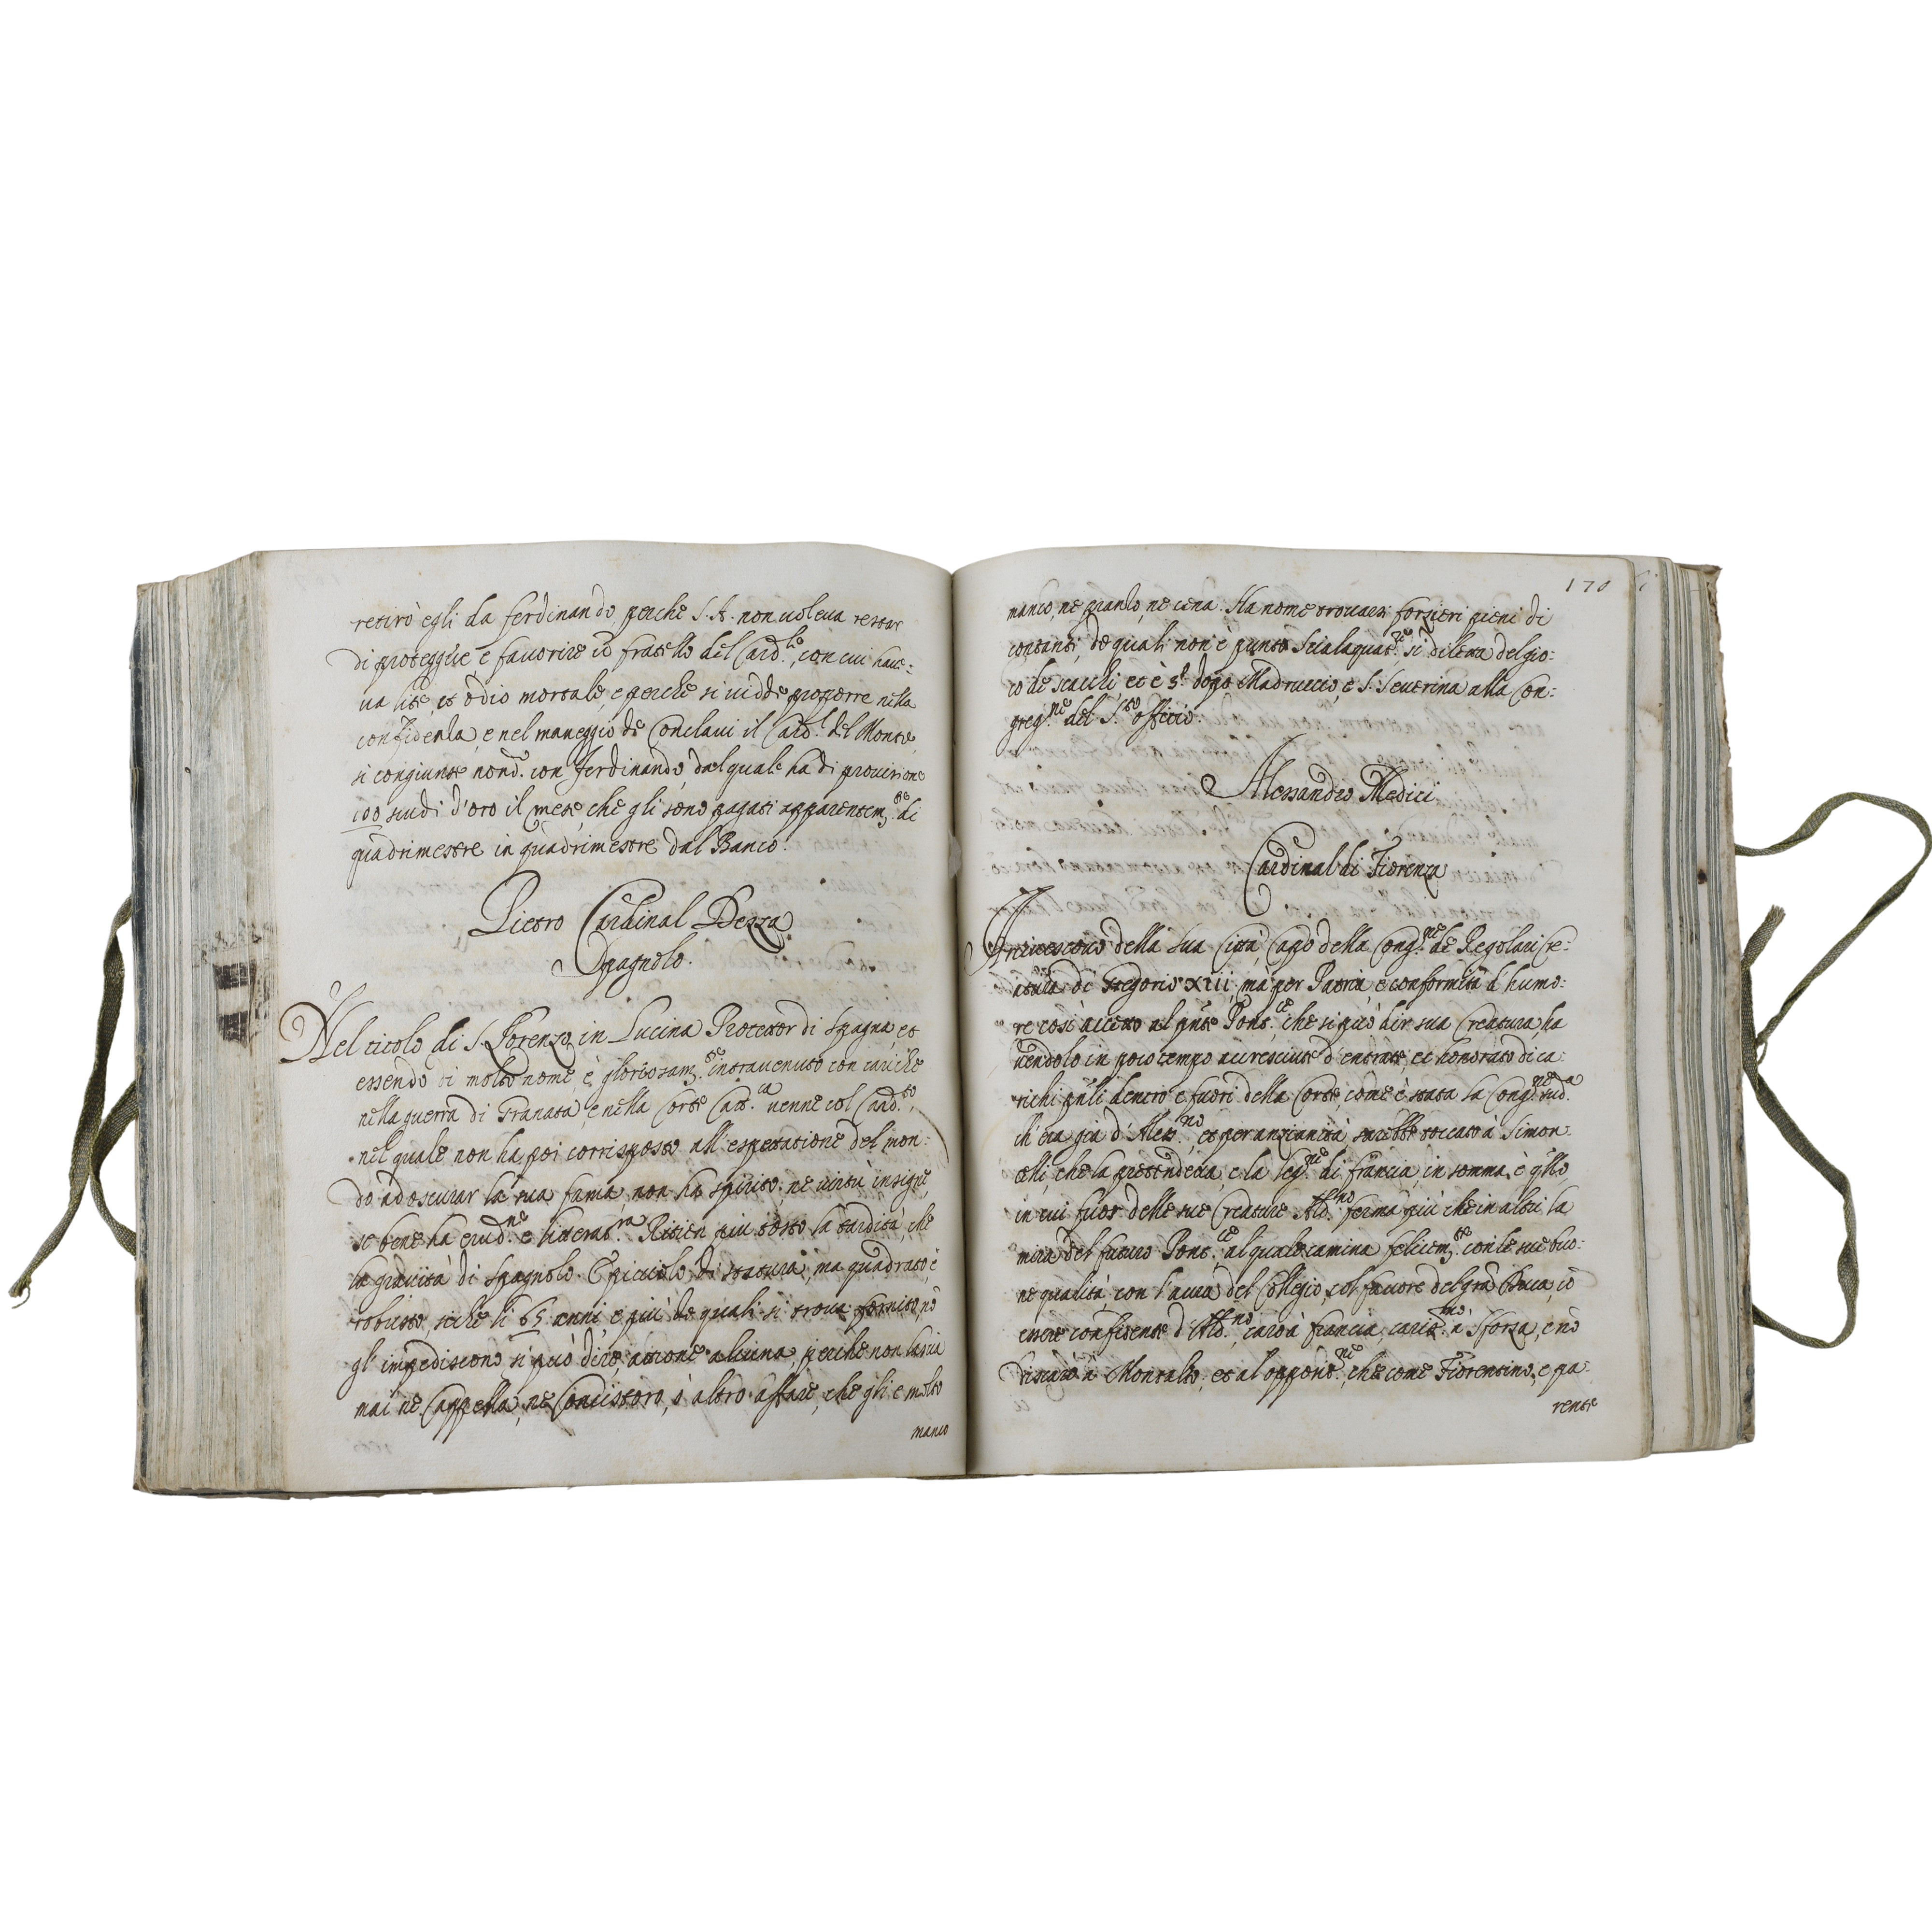 retirò egli da Ferdinando, perche S. A. non uoleua restar
di proteggere e fauorire il fratello del Card.le, con cui haue:
ua lite, et odio mortale, e perche si uidde preporre nella
confidenza, e nel maneggio de Conclaui il Card.l del Monte,
si congiunse nond. con Ferdinando, dal quale ha di prouisione
100 scudi d'oro il mese, che gli sono pagati apparentem.te di
quadrimestre in quadrimestre dal Banco.
Pietro Cardinal Dezza
Spagnolo.
Nel titolo di S. Lorenzo in Lucina Protettor di Spagna, et
essendo di molto nome, è gloriosam.te intrauenuto con cariche
nella guerra di Granata, e nella Corte Catt.ca uenne col Card.to,
nel quale non ha poi corrisposto all'espettatione del mon:
do ad oscurar la sua fama, non ha spirito, ne uirtù insigne,
se bene ha erud.ne e litterat.ra Ritien piu tosto la tardità, che
la grauità di Spagnolo. È piccolo di statura, ma quadrato, è
robusto, siche li 65 anni, e più de quali si troua fornito, nō
gl'impediscono si può dire, attione alcuna, perche non lascia
mai ne Cappella, ne Concistoro, ò altro affare, che gli e molto
manco
170
manco, ne pranzo, ne cena. Ha nome trouarsi forzieri pieni di
contanti, de quali non è punto Scialaquat.re, si diletta del gio:
co de scacchi, et è 3.º dopo Madruccio, e S. Seuerina alla Con:
greg.ne del S.to Officio.
Alessandro Medici
Cardinal di Fiorenza
Arciuescouo della sua Città, Capo della Cong.ne de Regolari Cre:
atura di Gregorio XIII, mà per Patria, e conformità d'humo:
re così accetto al pnte Pont.ce che si può dir sua Creatura, ha
uendolo in poco tempo accresciuto d'entrate, et honorato di ca:
richi pnli dentro e fuori della Corte, come è stata la Cong.ne sud.a
ch'era già d'Aless.no, et per anzianità sarebbe toccato à Simon:
celli, che la pretendeua, e la leg.ne di Francia, in somma è qllo,
in cui fuor delle sue Creature Ald.no ferma più che in altri la
mira del futuro Pont.ce al quale camina felicem.te con le sue buo:
ne qualità, con l'aura del Collegio, col fauore del gran Duca, cō
essere confidente d'Ald.no, caro à Francia, cariss.mo à Sforza, e nō
discaro à Montalto, et al oppōne.ne, che come Fiorentino, e pa:
rente